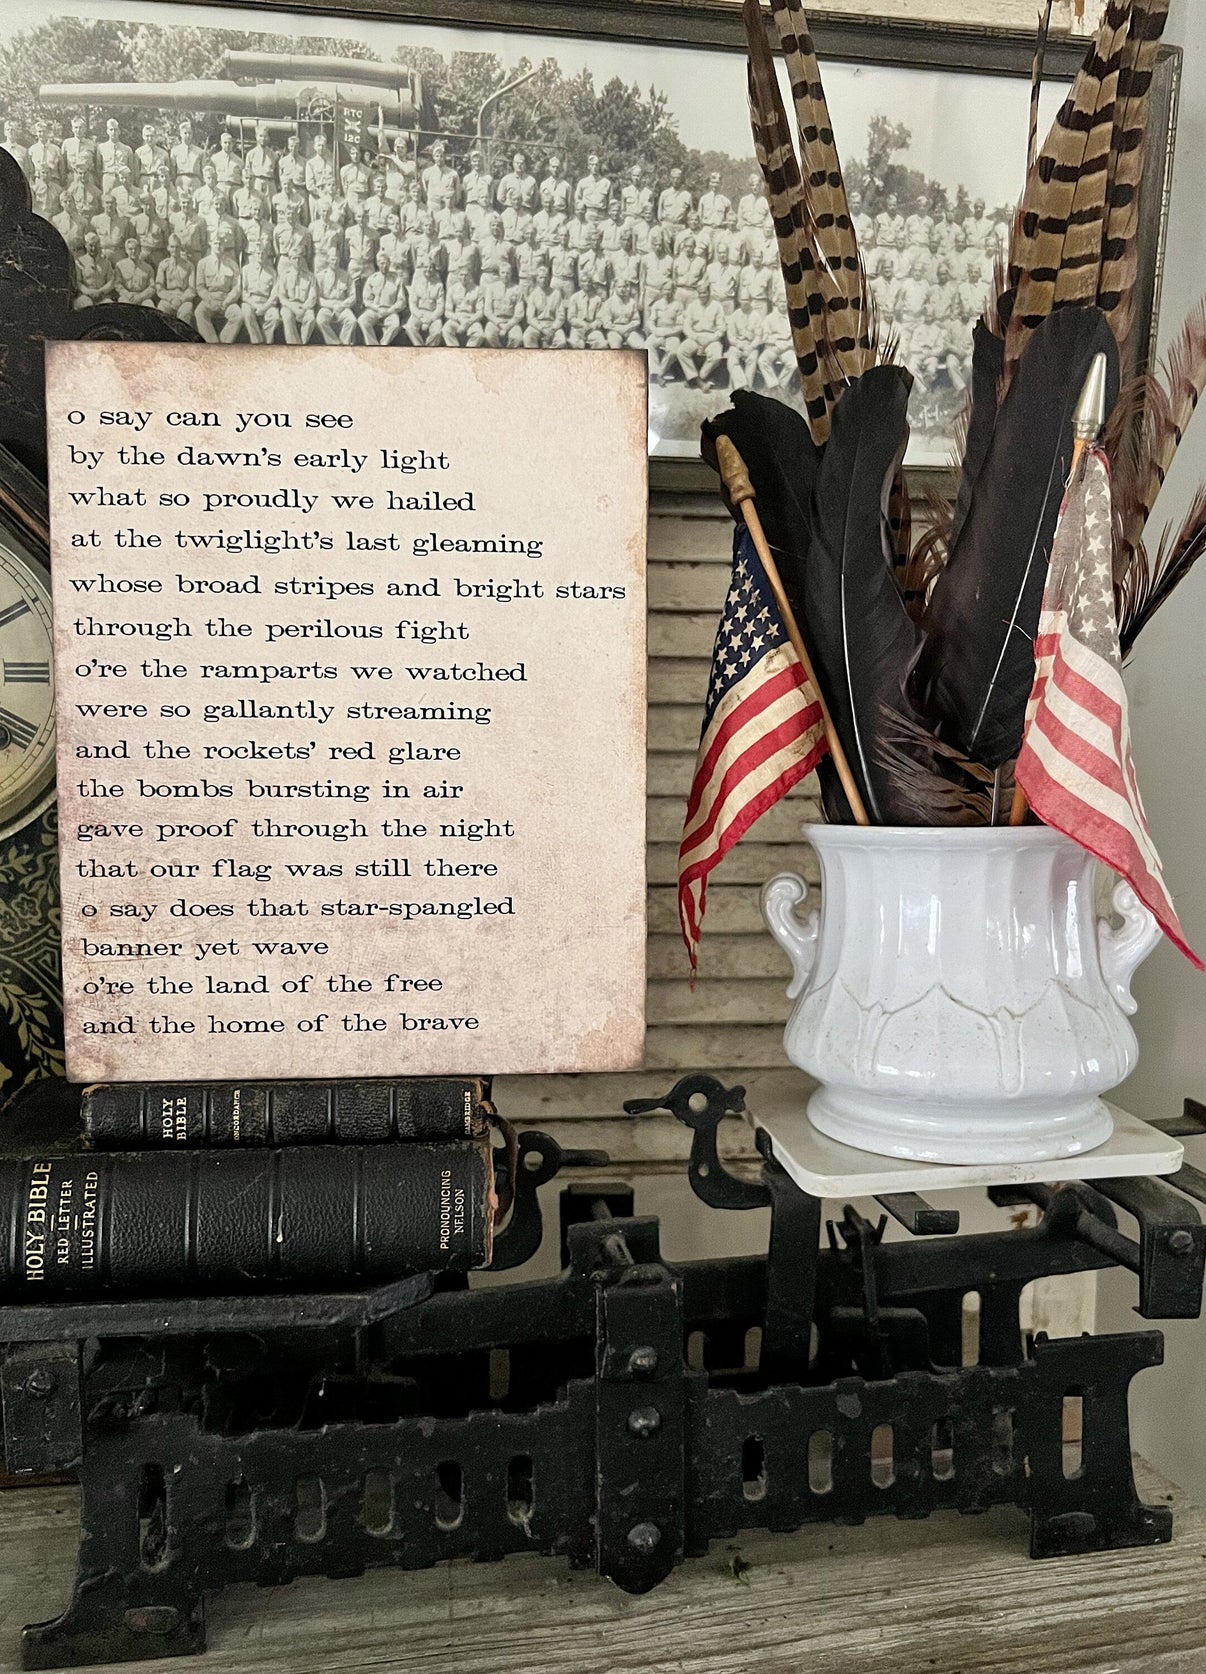 RTC
120
o say can you see
by the dawn's early light
what so proudly we hailed
at the twiglight's last gleaming
whose broad stripes and bright stars
through the perilous fight
o're the ramparts we watched
were so gallantly streaming
and the rockets' red glare
the bombs bursting in air
gave proof through the night
that our flag was still there
o say does that star-spangled
banner yet wave
o're the land of the free
and the home of the brave
HOLY
BIBLE
CONCORDANCE
CAMBRIDGE
HOLY BIBLE
RED LETTER
ILLUSTRATED
PRONOUNCING
NELSON